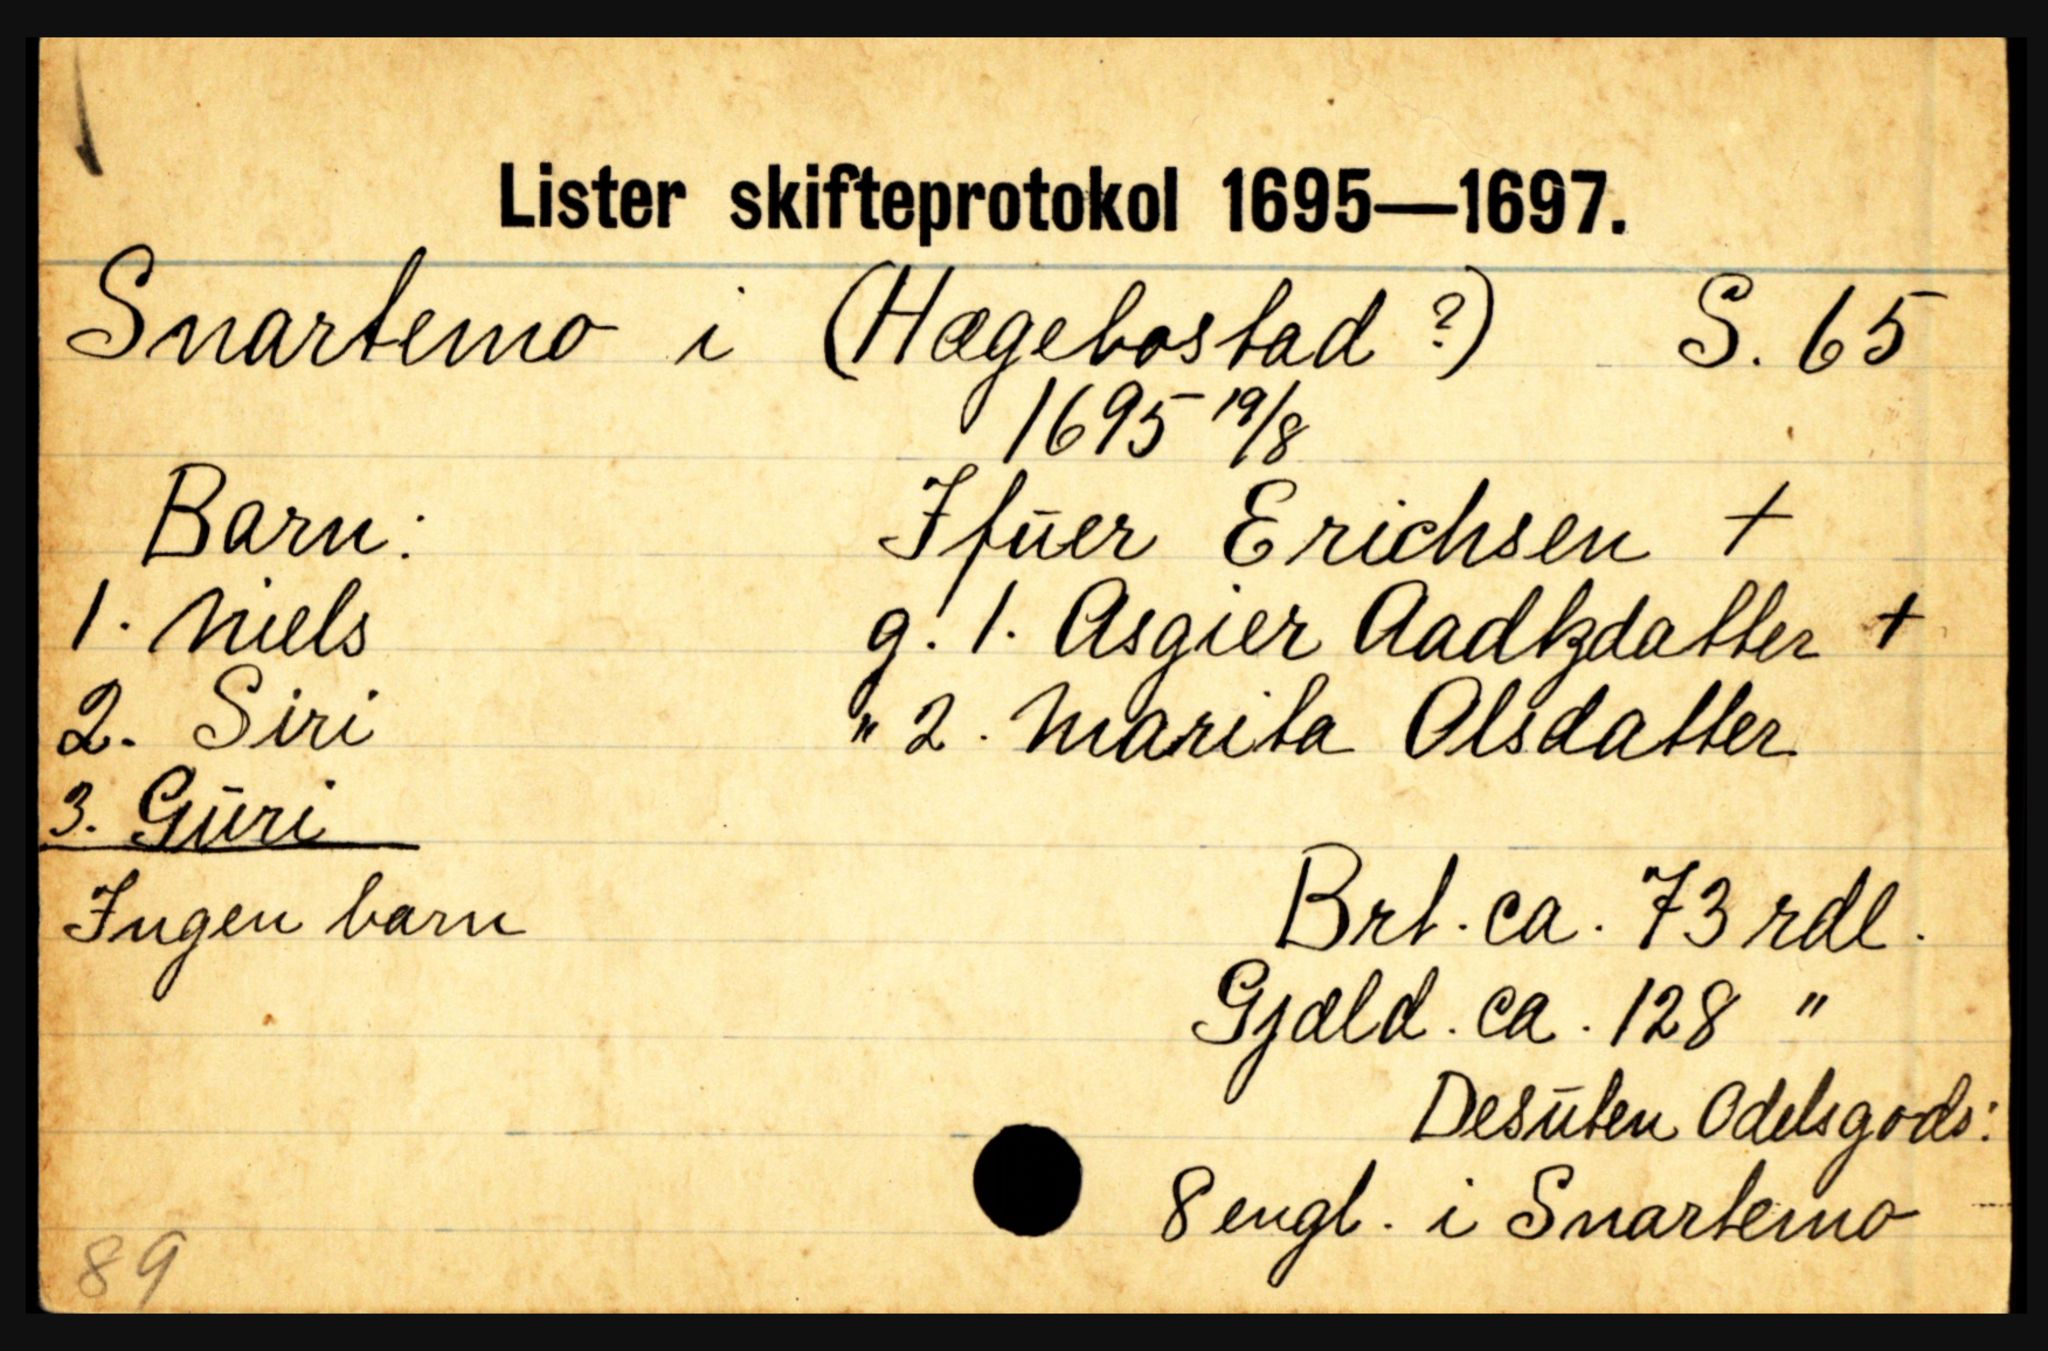 Lister skifteprotokol 1695—1697.
Snartemo i (Hægebostad ?) S. 65
1695 19/8
Barn: Ifūer Erichsen +
1. Niels g. 1. Asgier Aadtzdatter +
2. Siri " 2. Marita Olsdatter
3. Gūri
Ingen barn Brt. ca. 73 rdl.
Gjæld. ca. 128 "
Desūten Odelsgods:
8 engl. i Snartemo
89